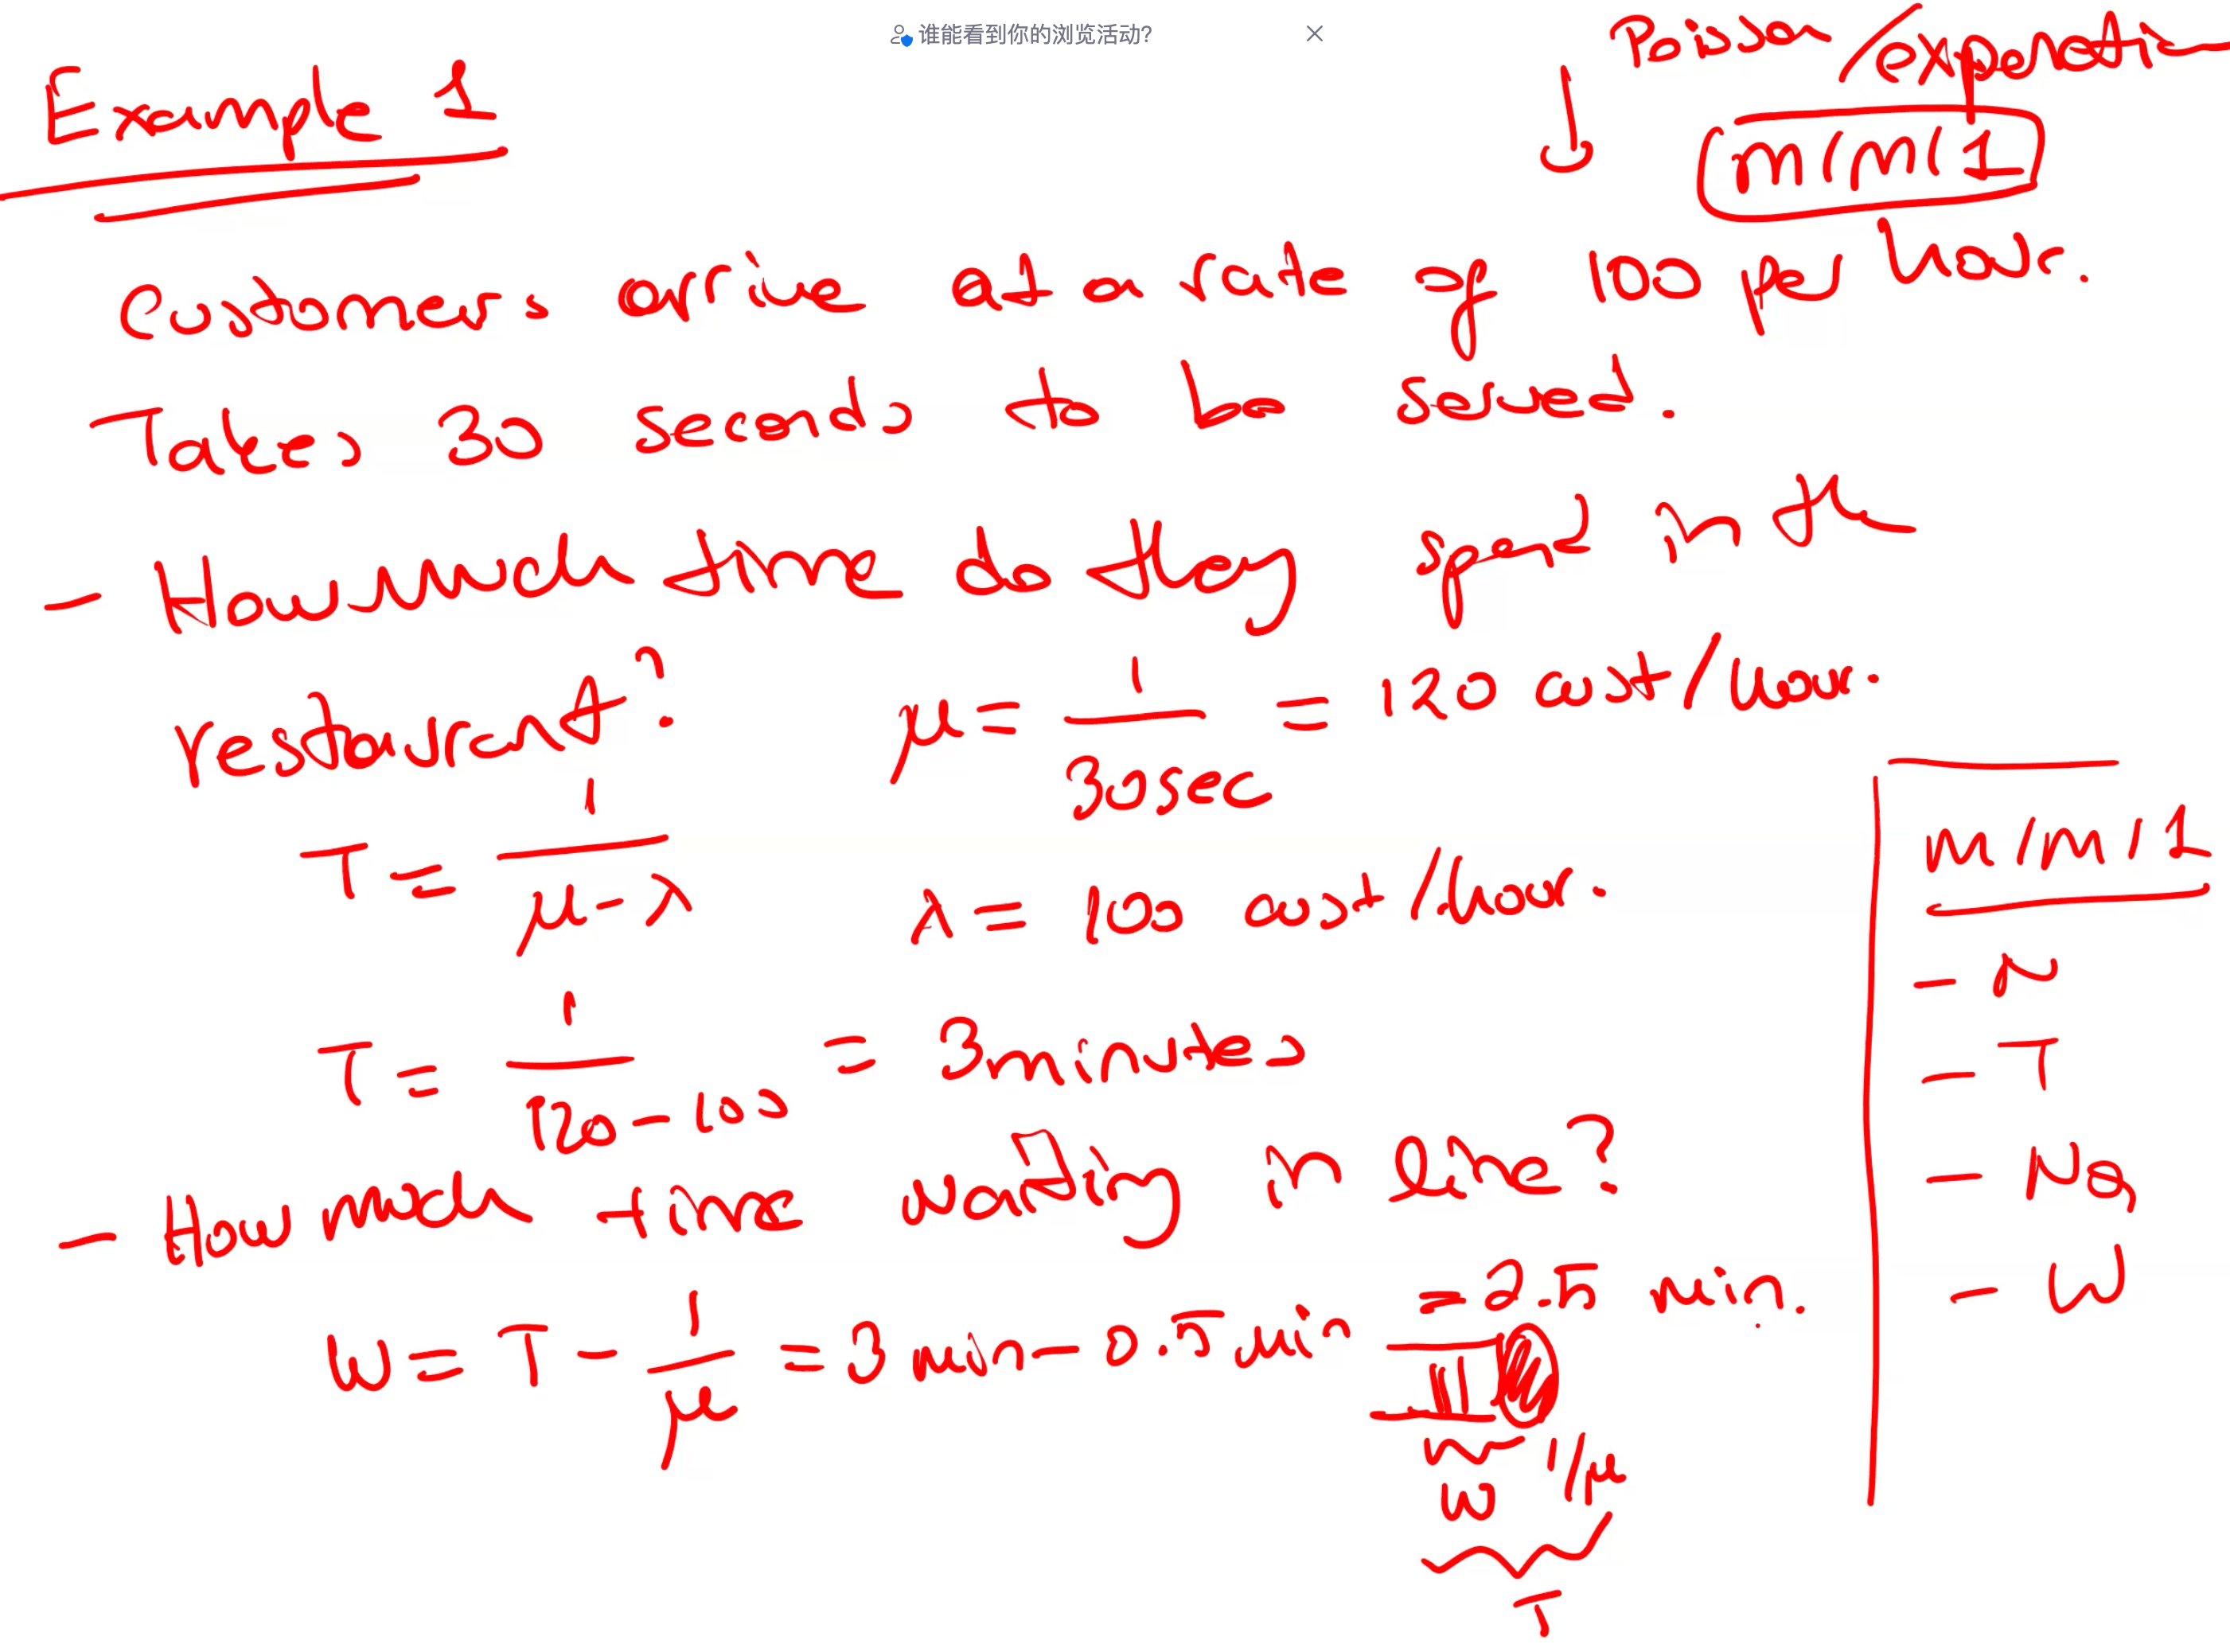 谁能看到你的浏览活动?
Poisson/exponential
Example 1
M/M/1
Customers arrive at a rate of 100 per hour.
Takes 30 seconds to be served.
- How much time do they spend in the
restaurant?
μ = 1/30sec = 120 cust/hour.
T = 1/(μ-λ)
λ = 100 cust/hour.
T = 1/(120-100) = 3 minutes
- How much time waiting in line?
W = T - 1/μ = 3 min - 0.5 min = 2.5 min.
W 1/μ
T
M/M/1
- N
- T
- NQ
- W